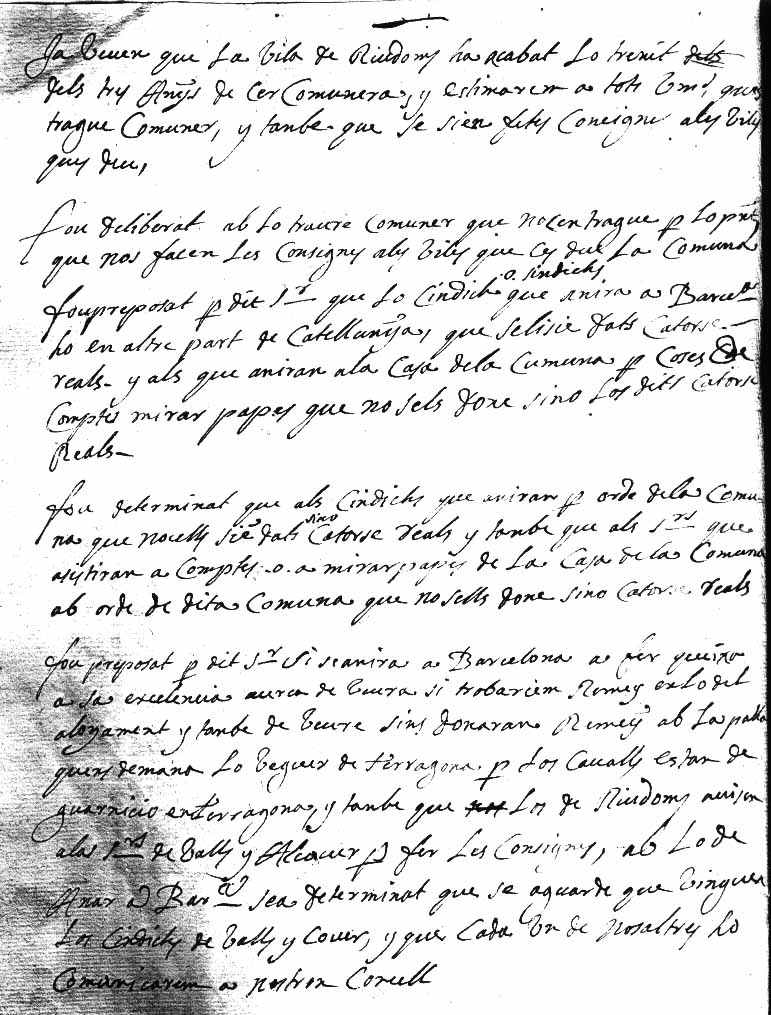 Ja veuen que La Vila de Riudoms ha acabat Lo trenit dels
dels tres Anys de Cer Comunera, y estimarem a tots Vms, ques
trague Comuner, y tanbe que se sien fetes Consigne ales Viles
ques deu,
fou deliberat ab Lo traure Comuner que nocen trague p Lo pnt,
que nos facen Les Consignes ales Viles que Ces due La Comuna
fou preposat p dit Sr que Lo Cindich o. sindichs que anira a Barcena
ho en altre part de Catellunya, que selisie dats Catorse
reals y als que aniran ala Casa dela Cumuna p Coses de
Comptes mirar papes que no sels done sino Los dits Catorse
Reals
fou determinat que als Cindichs que aniran p orde dela Comu
na que nocells sie dats sino Catorse reals y tanbe que als Srs que
asistiran a Comptes .o. a mirar papes de La Casa de la Comuna
ab orde de dita Comuna que no sells done sino Catorse reals
fou preposat p dit Sr Si se anira a Barcelona a fer queixa
a sa excelencia acerca de veura si trobariem Remey en Lo del
alojament y tanbe de veure sins donaran Remey ab La palla
quens demana Lo Veguer de terragona p Los Cavalls estan de
guarnicio en terragona, y tanbe que Los de Riudoms avisen
alas Srs de Valls y Alcover p fer Les Consignes, ab Lo de
Anar a Barna sea determinat que se aguarde que vinguen
Los Cindichs de Valls y Cover, y que Cada Un de nosaltres ho
Comunicarem a nostron Concell